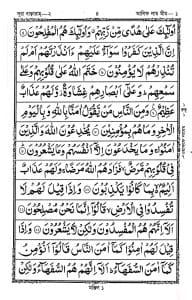 ૪
اُولٰٓئِكَ عَلٰى هُدًى مِّنْ رَّبِّهِمْ وَاُولٰٓئِكَ هُمُ الْمُفْلِحُوْنَ
اِنَّ الَّذِيْنَ كَفَرُوْا سَوَآءٌ عَلَيْهِمْ ءَاَنْذَرْتَهُمْ اَمْ لَمْ
تُنْذِرْهُمْ لَا يُؤْمِنُوْنَ خَتَمَ اللّٰهُ عَلٰى قُلُوْبِهِمْ وَعَلٰى
سَمْعِهِمْ وَعَلٰٓى اَبْصَارِهِمْ غِشَاوَةٌ وَّلَهُمْ عَذَابٌ
عَظِيْمٌ وَمِنَ النَّاسِ مَنْ يَّقُوْلُ اٰمَنَّا بِاللّٰهِ وَبِالْيَوْمِ
الْاٰخِرِ وَمَا هُمْ بِمُؤْمِنِيْنَ يُخٰدِعُوْنَ اللّٰهَ وَالَّذِيْنَ
اٰمَنُوْا وَمَا يَخْدَعُوْنَ اِلَّآ اَنْفُسَهُمْ وَمَا يَشْعُرُوْنَ
فِيْ قُلُوْبِهِمْ مَّرَضٌ فَزَادَهُمُ اللّٰهُ مَرَضًا وَلَهُمْ عَذَابٌ
اَلِيْمٌ بِمَا كَانُوْا يَكْذِبُوْنَ وَاِذَا قِيْلَ لَهُمْ لَا
تُفْسِدُوْا فِي الْاَرْضِ قَالُوْٓا اِنَّمَا نَحْنُ مُصْلِحُوْنَ
اَلَآ اِنَّهُمْ هُمُ الْمُفْسِدُوْنَ وَلٰكِنْ لَّا يَشْعُرُوْنَ وَاِذَا
قِيْلَ لَهُمْ اٰمِنُوْا كَمَآ اٰمَنَ النَّاسُ قَالُوْٓا اَنُؤْمِنُ
كَمَآ اٰمَنَ السُّفَهَآءُ اَلَآ اِنَّهُمْ هُمُ السُّفَهَآءُ وَلٰكِنْ